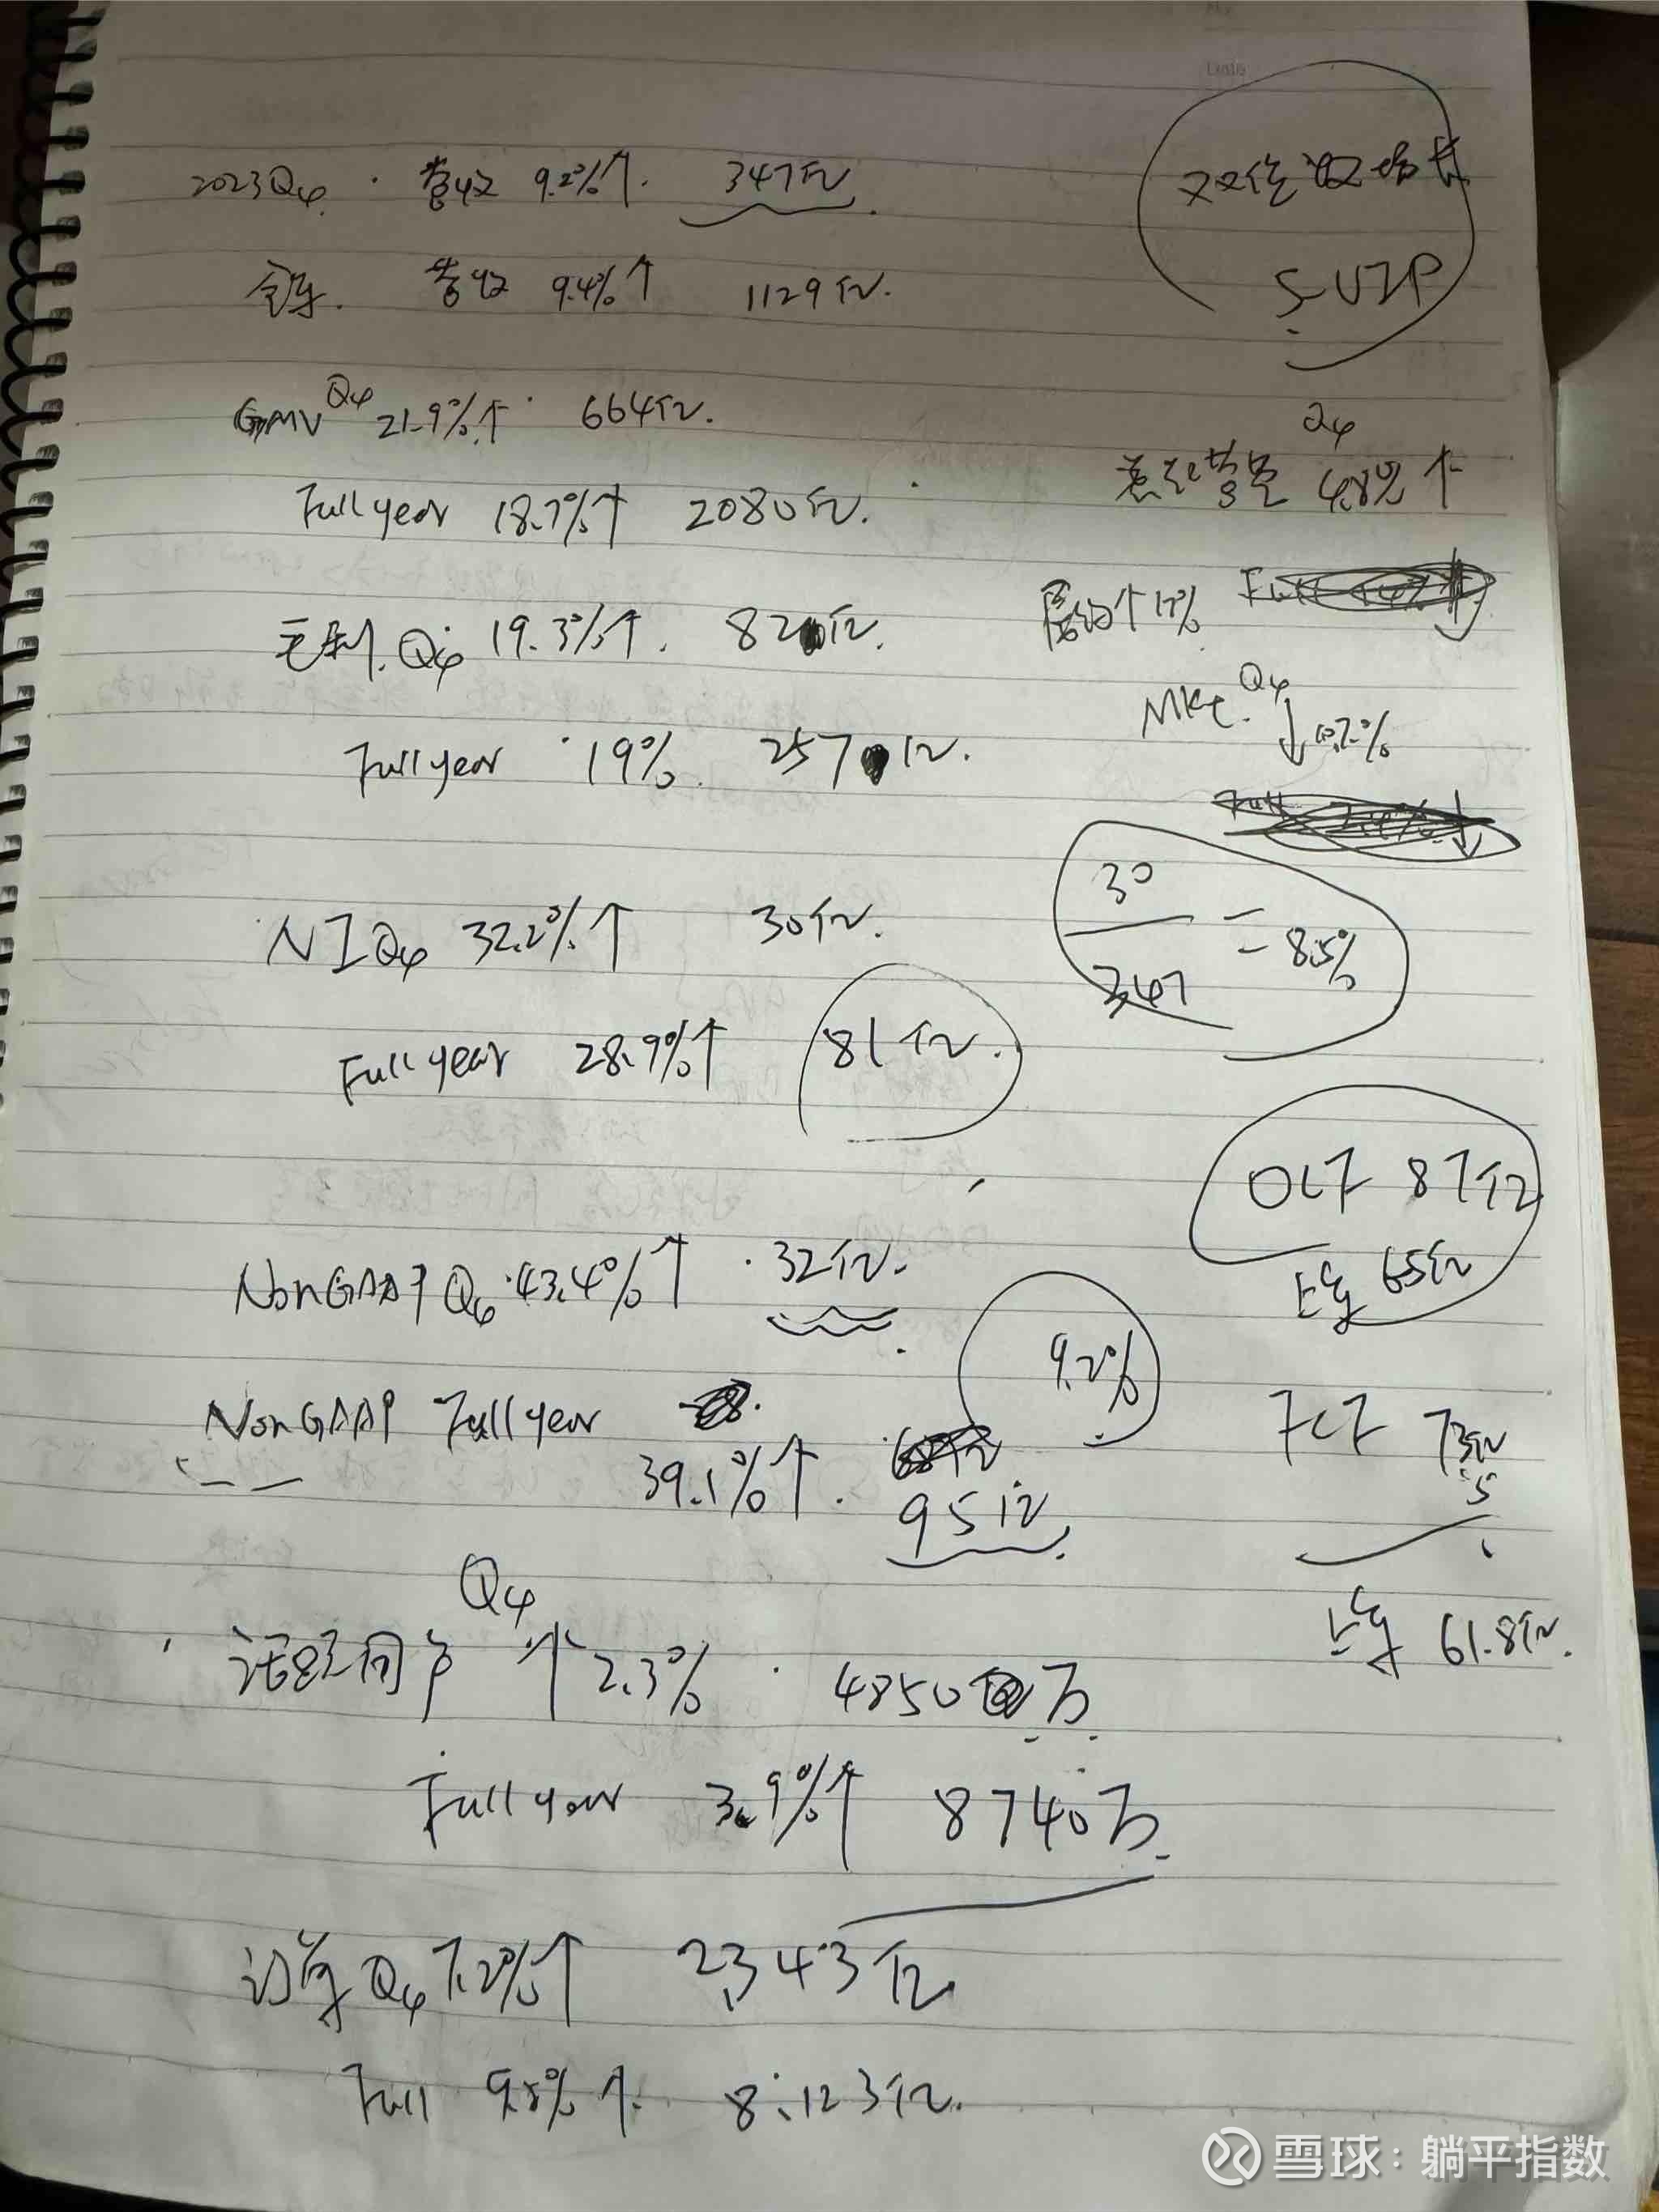 Date
2023Q4. 营收 9.2%↑. 347亿.
双位数增长
SVIP
全年. 营收 9.4%↑ 1129亿.
GMV Q4 21.9%↑ 664亿.
Q4
4.8% ↑
Full year 18.7%↑ 2080亿.
毛利. Q4 19.3%↑. 82亿.
履约↑17%
Mkt. Q4 ↓10.2%
Full year 19% 257亿.
NI Q4 32.2%↑ 30亿.
30/347 = 8.5%
Full year 28.9%↑ 81亿.
OCF 87亿
上年 65亿
NonGAAP Q4 43.4%↑ 32亿.
9.2%
NonGAAP Full year
39.1%↑. 95亿.
FCF 73亿
.5
上年 61.8亿.
Q4
活跃用户 ↑2.3% 4850万
Full year 3.9%↑ 8740万
订单 Q4 7.2%↑ 2.343亿
Full 9.8%↑ 8.123亿.
雪球：躺平指数